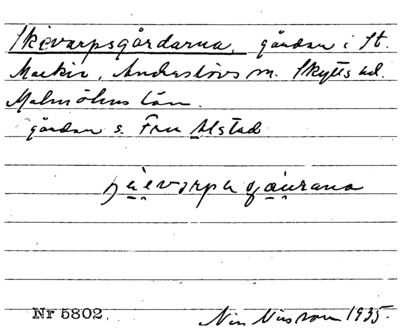 Skevarpsgårdarna, gårdar i St.
Markie, Anderslövs sn. Skytts hd.
Malmöhus län.
gårdar s. från Alstad
Nr 5802. Nils Nilsson 1935.